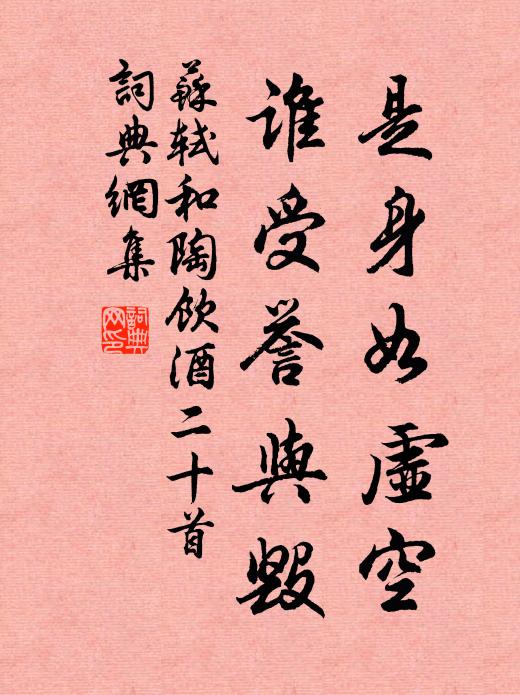 是身如虛空
誰受譽與毀
蘇軾和陶飲酒二十首
詞典網集
詞典
网印